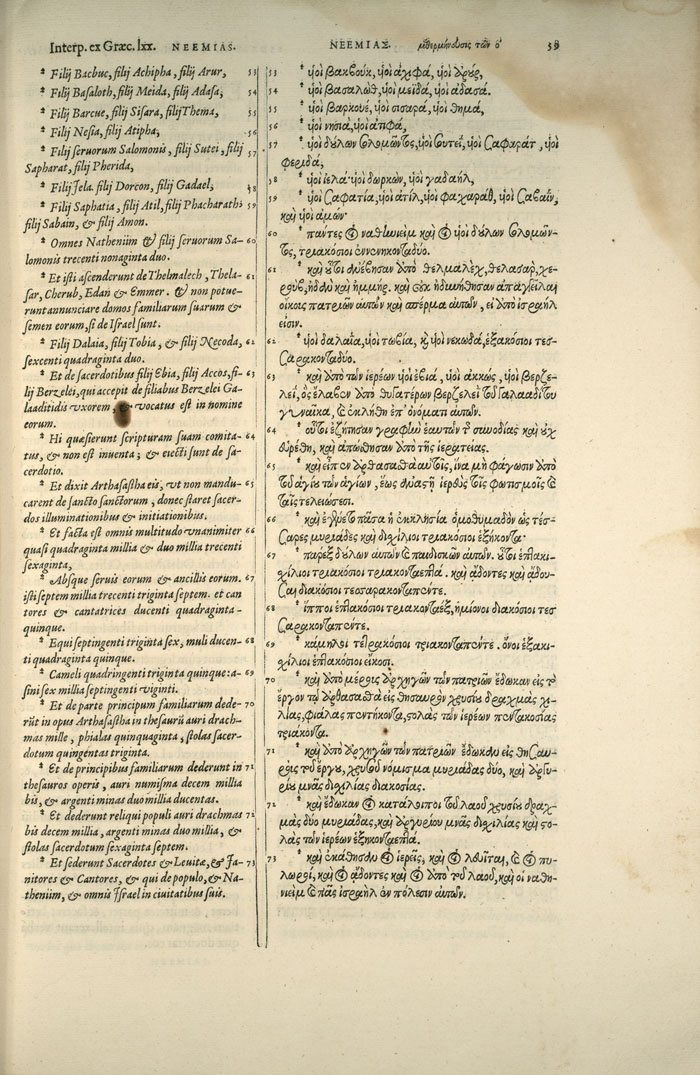 Interp. ex Græc. lxx. NEEMIAS.
* Filij Bacbuc, filij Achipha, filij Arur, 53
* Filij Basaloth, filij Meida, filij Adasa, 54
* Filij Barcue, filij Sisara, filij Thema, 55
* Filij Nesia, filij Atipha, 56
* Filij seruorum Salomonis, filij Sutei, filij 57
Sapharat, filij Pherida,
* Filij Jela. filij Dorcon, filij Gadael, 58
* Filij Saphatia, filij Atil, filij Phacharath, 59
filij Sabain, & filij Amon.
* Omnes Nathenìim & filij seruorum Sa- 60
lomonis trecenti nonaginta duo.
* Et isti ascenderunt de Thelmalech, Thela- 61
sar, Cherub, Edan & Emmer. & non potue-
runt annunciare domos familiarum suarum &
semen eorum, si de Israel sunt.
* Filij Dalaia, filij Tobia, & filij Necoda, 62
sexcenti quadraginta duo.
* Et de sacerdotibus filij Ebia, filij Accos, fi- 63
lij Berzelei, qui accepit de filiabus Berzelei Ga-
laaditidis vxorem, & vocatus est in nomine
eorum.
* Hi quæsierunt scripturam suam comita- 64
tus, & non est inuenta; & eiecti sunt de sa-
cerdotio.
* Et dixit Arthasastha eis, vt non mandu- 65
carent de sancto sanctorum, donec staret sacer-
dos illuminationibus & initiationibus.
* Et facta est omnis multitudo vnanimiter 66
quasi quadraginta millia & duo millia trecenti
sexaginta,
* Absque seruis eorum & ancillis eorum. 67
isti septem millia trecenti triginta septem. et can
tores & cantatrices ducenti quadraginta-
quinque.
* Equi septingenti triginta sex, muli ducen- 68
ti quadraginta quinque.
* Cameli quadringenti triginta quinque: a- 69
sini sex millia septingenti viginti.
* Et de parte principum familiarum dede- 70
rūt in opus Arthasastha in thesaurū auri drach-
mas mille, phialas quinquaginta, stolas sacer-
dotum quingentas triginta.
* Et de principibus familiarum dederunt in 71
thesauros operis, auri numisma decem millia
bis, & argenti minas duo millia ducentas.
* Et dederunt reliqui populi auri drachmas 72
bis decem millia, argenti minas duo millia, &
stolas sacerdotum sexaginta septem.
* Et sederunt Sacerdotes & Leuitæ, & Ja- 73
nitores & Cantores, & qui de populo, & Na-
thenìim, & omnis Israel in ciuitatibus suis.
ΝΕΕΜΙΑΣ. μεθερμήνευσις τῶν ο΄ 39
53 * ὑοὶ βακβοὺκ, ὑοὶ ἀχιφά, ὑοὶ ἀρούρ,
54 * ὑοὶ βασαλὼθ, ὑοὶ μειδά, ὑοὶ ἀδασά.
55 * ὑοὶ βαρκουέ, ὑοὶ σισαρά, ὑοὶ θημά,
56 * ὑοὶ νησιά, ὑοὶ ἀτιφά,
57 * ὑοὶ δούλων σολομῶντος, ὑοὶ σουτεΐ, ὑοὶ σαφαρὰτ, ὑοὶ
φεριδά,
58 * ὑοὶ ἰελὰ· ὑοὶ δωρκὼν, ὑοὶ γαδαὴλ,
59 * ὑοὶ σαφατία, ὑοὶ ἀτὶλ, ὑοὶ φαχαρὰθ, ὑοὶ σαβαῒν,
καὶ ὑοὶ ἀμών·
60 * πάντες οἱ ναθινεὶμ καὶ οἱ ὑοὶ δούλων σολομῶν-
τος, τριακόσιοι ἐννενηκονταδύο.
61 * καὶ οὗτοι ἀνέβησαν ἀπὸ θελμαλὲχ, θελασὰρ, χε-
ροὺβ, ἠδὰν καὶ ἠμμήρ. καὶ οὐκ ἠδυνήθησαν ἀπαγγεῖλαι
οἴκους πατριῶν αὐτῶν καὶ σπέρμα αὐτῶν, εἰ ἀπὸ ἰσραὴλ
εἰσιν.
62 * ὑοὶ δαλαΐα, ὑοὶ τωβία, καὶ ὑοὶ νεκωδά, ἑξακόσιοι τεσ-
σαρακονταδύο.
63 * καὶ ἀπὸ τῶν ἱερέων ὑοὶ ἐβιά, ὑοὶ ἀκκὼς, ὑοὶ βερζε-
λεὶ, ὃς ἔλαβεν ἀπὸ θυγατέρων βερζελεὶ τοῦ γαλααδίτου
γυναῖκα, καὶ ἐκλήθη ἐπ' ὀνόματι αὐτῶν.
64 * οὗτοι ἐζήτησαν γραφὴν ἑαυτῶν τ συνοδίας καὶ οὐχ
εὑρέθη, καὶ ἀπώθησαν ἀπὸ τῆς ἱερατείας.
65 * καὶ εἶπεν ἀρθασασθὰ αὐτοῖς, ἵνα μὴ φάγωσιν ἀπὸ
τοῦ ἁγίου τῶν ἁγίων, ἕως ἀναστῇ ἱερεὺς τοῖς φωτισμοῖς καὶ
ταῖς τελειώσεσι.
66 * καὶ ἐγένετο πᾶσα ἡ ἐκκλησία ὁμοθυμαδὸν ὡς τέσ-
σαρες μυριάδες καὶ δισχίλιοι τριακόσιοι ἑξήκοντα·
67 * παρὲξ δούλων αὐτῶν καὶ παιδισκῶν αὐτῶν. οὗτοι ἑπτακι-
σχίλιοι τριακόσιοι τριακονταεπτά. καὶ ἄδοντες καὶ ἄδου-
σαι διακόσιοι τεσσαρακονταπέντε.
68 * ἵπποι ἑπτακόσιοι τριακονταὲξ, ἡμίονοι διακόσιοι τεσ
σαρακονταπέντε.
69 * κάμηλοι τετρακόσιοι τριακονταπέντε. ὄνοι ἑξακι-
σχίλιοι ἑπτακόσιοι εἴκοσι.
70 * καὶ ἀπὸ μέρους ἀρχηγῶν τῶν πατριῶν ἔδωκαν εἰς τὸ
ἔργον τῷ ἀρθασασθὰ εἰς θησαυρὸν χρυσίου δραχμὰς χι-
λίας, φιάλας πεντήκοντα, στολὰς τῶν ἱερέων πεντακοσίας
τριάκοντα.
71 * καὶ ἀπὸ ἀρχηγῶν τῶν πατριῶν ἔδωκαν εἰς θησαυ-
ροὺς τοῦ ἔργου, χρυσοῦ νόμισμα μυριάδας δύο, καὶ ἀργυ-
ρίου μνᾶς δισχιλίας διακοσίας.
72 * καὶ ἔδωκαν οἱ κατάλοιποι τοῦ λαοῦ χρυσίου δραχ-
μὰς δύο μυριάδας, καὶ ἀργυρίου μνᾶς δισχιλίας καὶ στο-
λὰς τῶν ἱερέων ἑξηκονταεπτά.
73 * καὶ ἐκάθησαν οἱ ἱερεῖς, καὶ οἱ λευῖται, καὶ οἱ πυ-
λωροὶ, καὶ οἱ ἄδοντες καὶ οἱ ἀπὸ τοῦ λαοῦ, καὶ οἱ ναθι-
νιεὶμ καὶ πᾶς ἰσραὴλ ἐν πόλεσιν αὐτῶν.